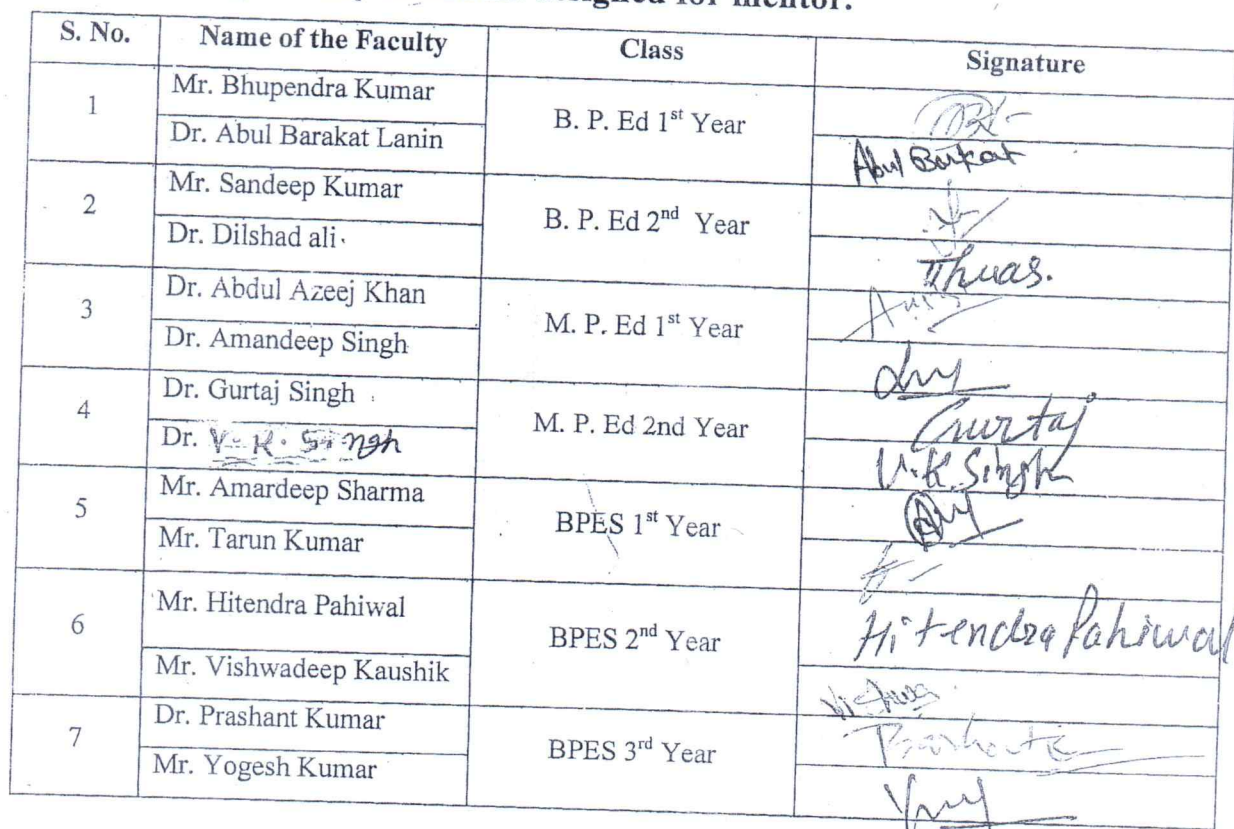 signed for mentor.
S. No. Name of the Faculty Class Signature
1 Mr. Bhupendra Kumar B. P. Ed 1st Year
Dr. Abul Barakat Lanin Abul Barkat
2 Mr. Sandeep Kumar B. P. Ed 2nd Year
Dr. Dilshad ali
3 Dr. Abdul Azeej Khan M. P. Ed 1st Year
Dr. Amandeep Singh
4 Dr. Gurtaj Singh M. P. Ed 2nd Year Gurtaj
Dr. V. K. Singh V.K. Singh
5 Mr. Amardeep Sharma BPES 1st Year
Mr. Tarun Kumar
6 Mr. Hitendra Pahiwal BPES 2nd Year Hitendra Pahiwal
Mr. Vishwadeep Kaushik Vishwa
7 Dr. Prashant Kumar BPES 3rd Year
Mr. Yogesh Kumar